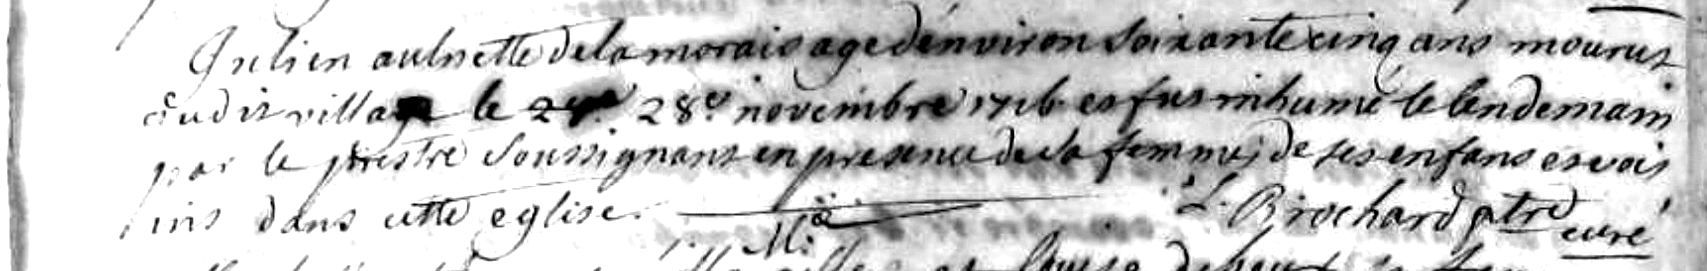 Julien aulnette de la morais age d'environ soixante cinq ans mourut
audit village le 28e novembre 1716 et fut inhumé le lendemain
par le prestre soussignant en presence de la femme, de ses enfans et vois
ins dans cette eglise.
L. Brochard ptre
curé